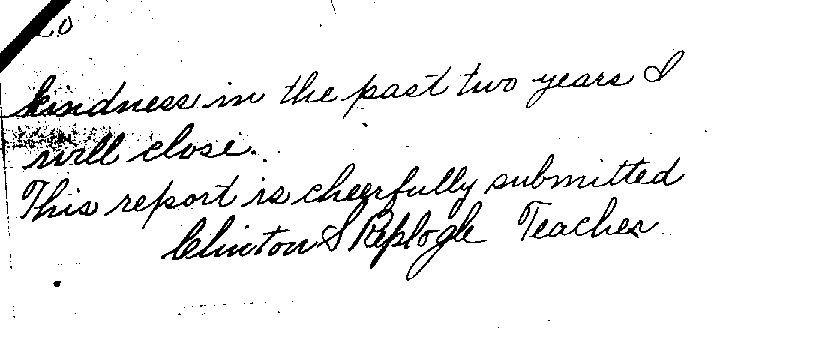 20
kindness in the past two years I
will close.
This report is cheerfully submitted
Clinton S Replogle Teacher